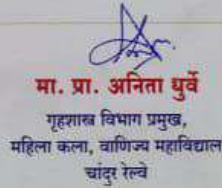 मा. प्रा. अनिता धुर्वे
गृहशास्त्र विभाग प्रमुख,
महिला कला, वाणिज्य महाविद्याल
चांदुर रेल्वे